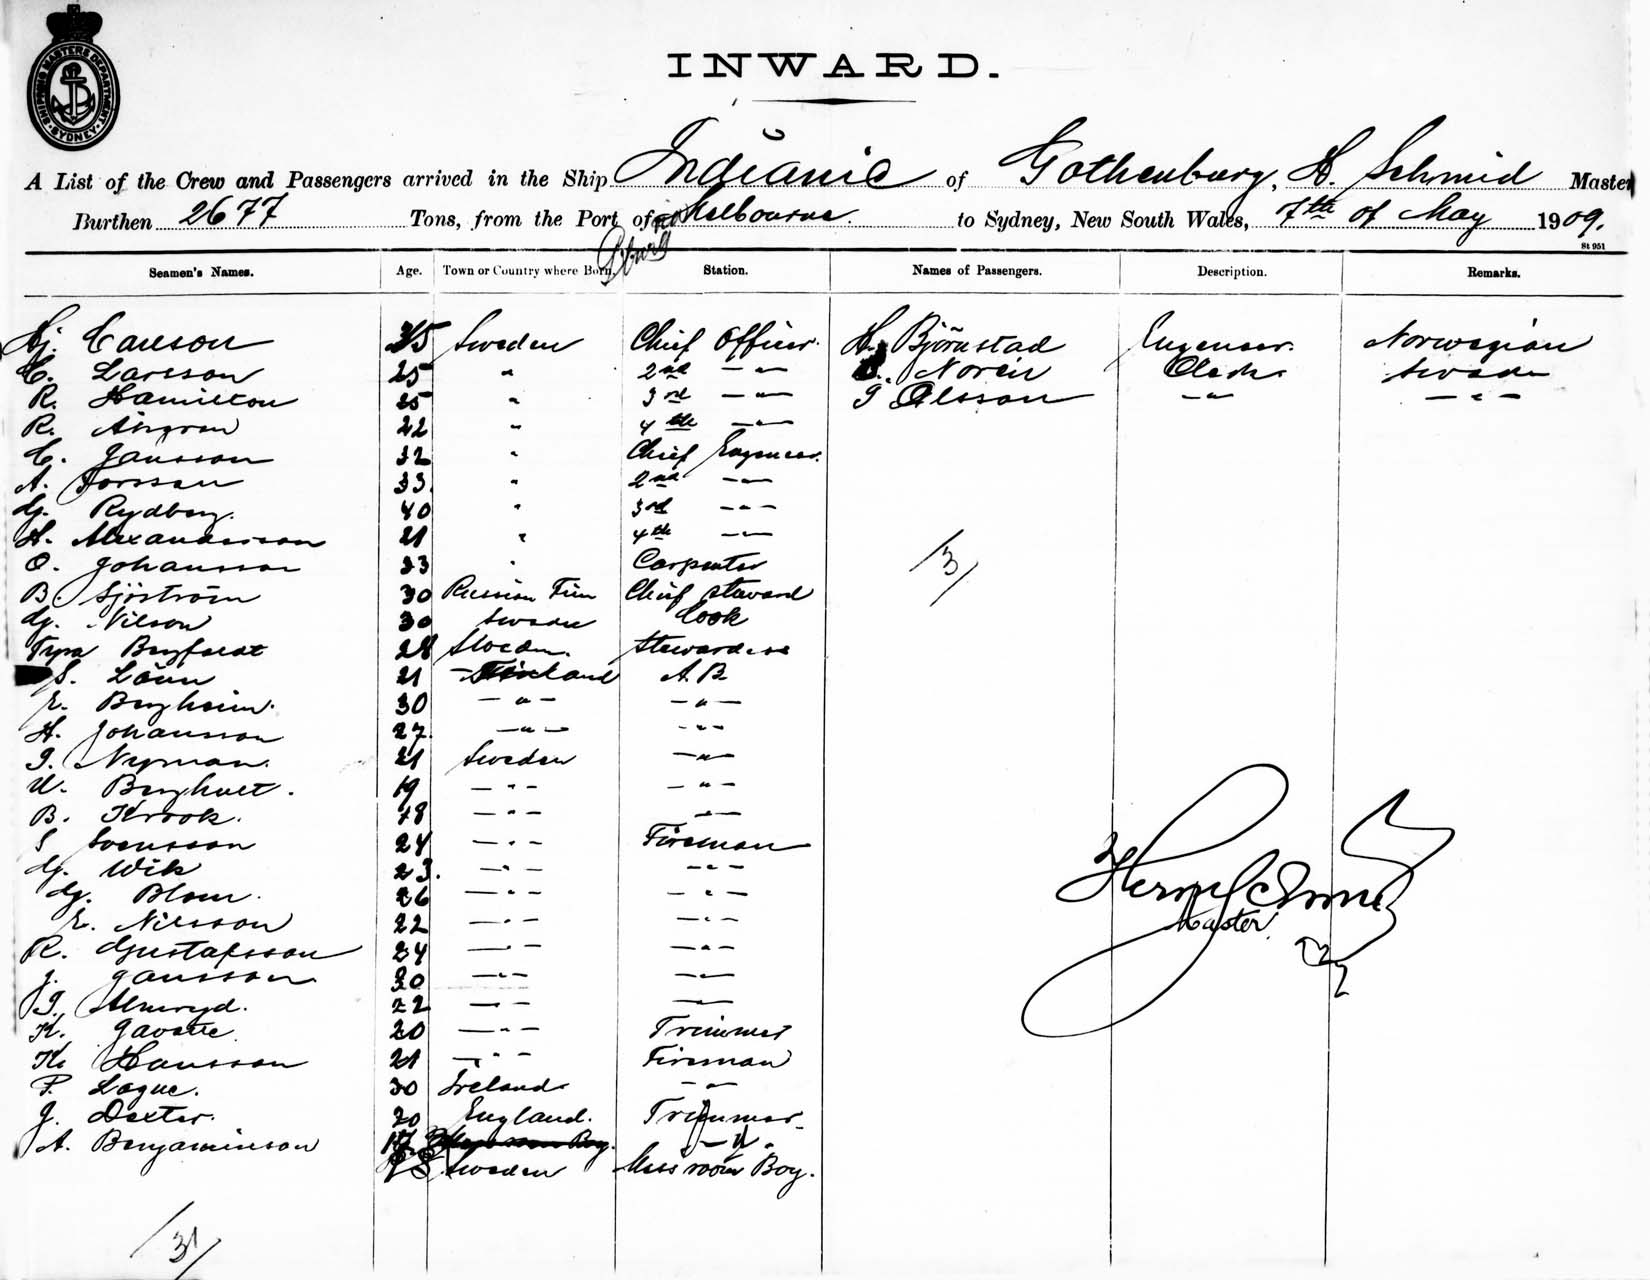 SHIPPING MASTERS DEPARTMENT
SYDNEY
INWARD.
A List of the Crew and Passengers arrived in the Ship Indianic of Gothenburg, H. Schmid Master
Burthen 2677 Tons, from the Port of Melbourne. to Sydney, New South Wales, 7th of May 1909.
St 951
Seamen's Names. Age. Town or Country where Born. Station. Names of Passengers. Description. Remarks.
Hj. Carlson 35 Sweden Chief Officer. H. Björnstad Engeneer. Norwegian
C. Larsson 25 " 2nd — " — Norén Clerk. Sweden
R. Hamilton 25 " 3rd — " — G Olsson — " — — " —
R. 22 " 4th — " —
C. Jansson 32 " Chief Engeneer.
A. 33. " 2nd — " —
G. Rydberg. 40 " 3rd — " —
H. Alexandersson 21 " 4th — " —
O. Johansson 23 " Carpenter
B. Sjöström 30 Russian Fin Chief Steward
G. Nilson 30 Sweden Cook
28 Sweden. Stewardess
S. Lönn 21 Finland A.B.
E. Bergheim. 30 — " — — " —
H. Johansson 27. — " — — " —
G. Nyman. 21 Sweden — " —
W. 19 — " — — " —
B. Krook. 18 — " — — " —
S Svensson 24 — " — Fireman
G. Wik 23. — " — — " —
G. Blom. 26 — " — — " —
E. Nilsson 22 — " — — " —
R. Gustafsson 24 — " — — " —
J. Jansson 20 — " — — " —
G. 22 — " — — " —
K. 20 — " — Trimmer
K. Hansson 21 — " — Fireman
P. Logue. 30 Ireland — " —
J. Dexter. 20 England. Trimmer
A. Benjaminson 17 — " —
Sweden Mess room Boy.
/3/
Master
/31/